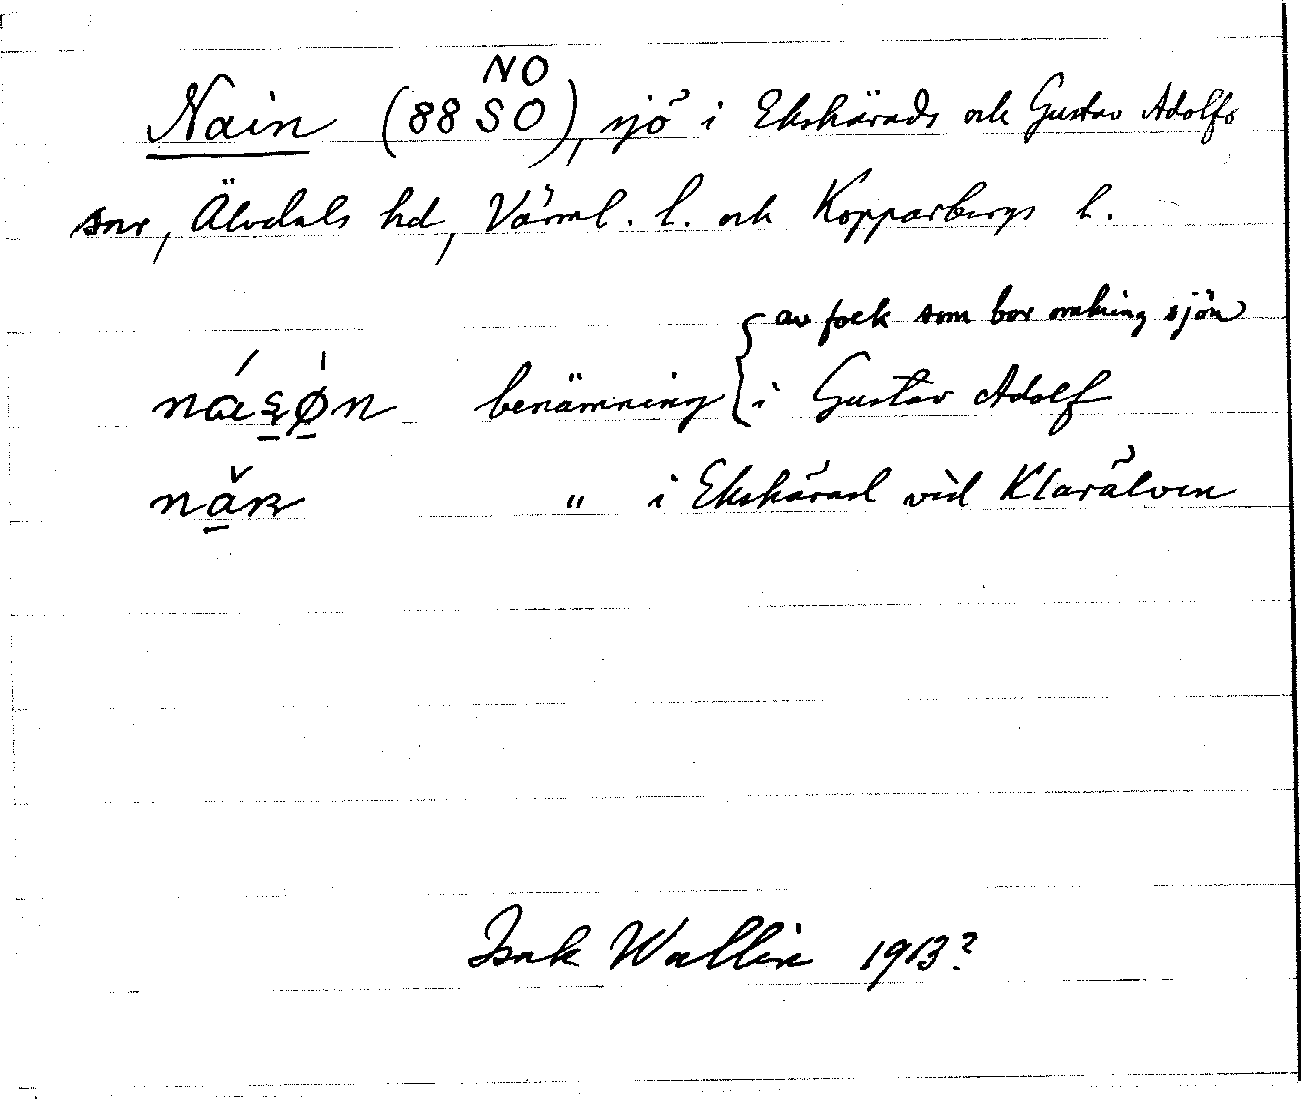 NO
Nain (88 SO), sjö i Ekshärads och Gustav Adolfs
snr, Älvdals hd, Värml. l. och Kopparbergs l.
av folk som bor omkring sjön
benämning { i Gustav Adolf
" i Ekshärad vid Klarälven
Isak Wallin 1913?